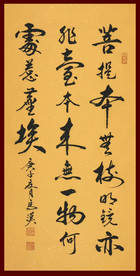 菩提本無樹明鏡亦
非臺本来無一物何
處惹塵埃
庚子